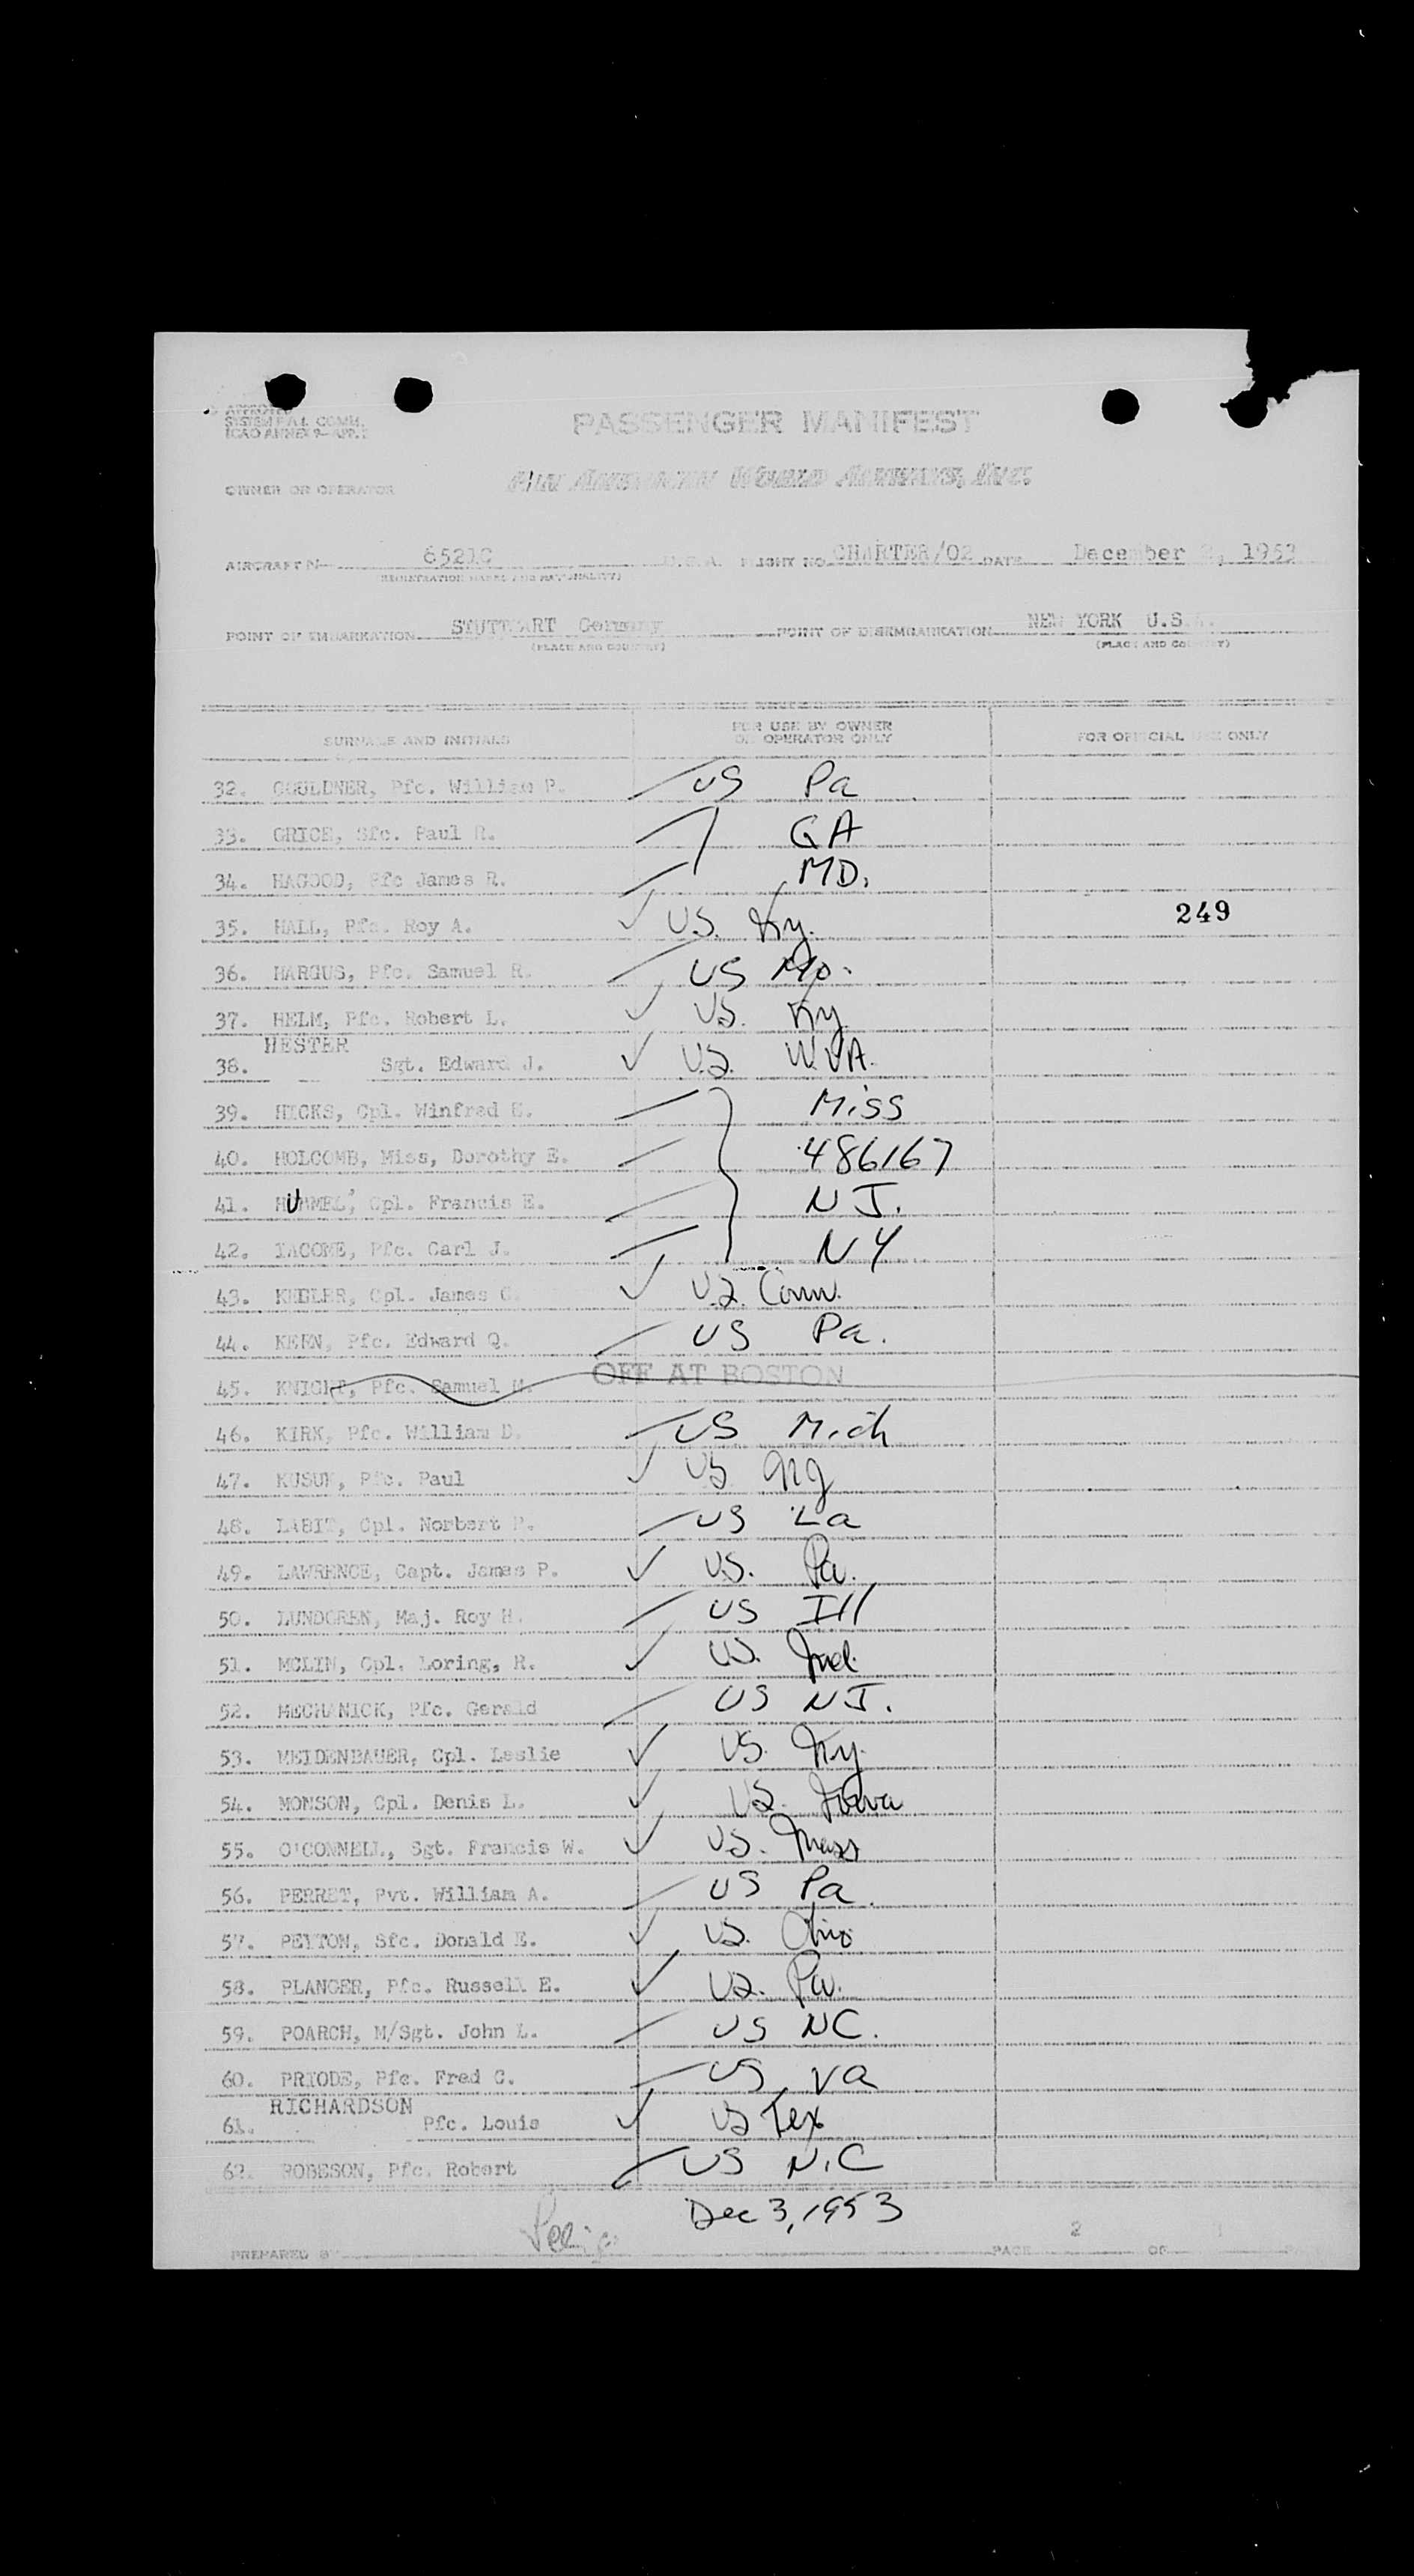 APPROVED
SYSTEM F.A.L. COMM.
ICAO ANNEX 9-APP.
PASSENGER MANIFEST
OWNER OR OPERATOR PAN AMERICAN WORLD AIRWAYS, INC.
AIRCRAFT N 6521C U.S.A. FLIGHT NO. CHARTER/02 DATE December 2, 1953
(REGISTRATION MARKS AND NATIONALITY)
POINT OF EMBARKATION STUTTGART Germany POINT OF DISEMBARKATION NEW YORK U.S.A.
(PLACE AND COUNTRY) (PLACE AND COUNTRY)
SURNAME AND INITIALS FOR USE BY OWNER OR OPERATOR ONLY FOR OFFICIAL USE ONLY
32. GOULDNER, Pfc. William P. US Pa
33. GRICE, Sfc. Paul R. GA
34. HAGOOD, Pfc James R. MD.
35. HALL, Pfc. Roy A. U.S. Ky. 249
36. HARGUS, Pfc. Samuel R. US Mo.
37. HELM, Pfc. Robert L. U.S. Ky
38. HESTER Sgt. Edward J. U.S. W.VA.
39. HICKS, Cpl. Winfred Miss
40. HOLCOMB, Miss, Dorothy E. 486167
41. HUMMEL, Cpl. Francis E. N J.
42. IACONE, Pfc. Carl J. N Y
43. KEELER, Cpl. James U.S. Conn.
44. KERN, Pfc. Edward Q. US Pa.
45. KNIGHT, Pfc. Samuel M. OFF AT BOSTON
46. KIRK, Pfc. William D. US Mich
47. Pfc. Paul US NY
48. LABIT, Cpl. Norbert P. US La
49. LAWRENCE, Capt. James P. U.S. Pa.
50. LUNDGREN, Maj. Roy H. US Ill
51. MCLIN, Cpl. Loring, R. U.S. Ind.
52. MECHANICK, Pfc. Gerald US N J.
53. MEIDENBAUER, Cpl. Leslie U.S. Ky.
54. MONSON, Cpl. Denis L. U.S. Iowa
55. O'CONNELL, Sgt. Francis W. U.S. Mass
56. PERRET, Pvt. William A. US Pa.
57. PEYTON, Sfc. Donald E. U.S. Ohio
58. PLANGER, Pfc. Russell E. U.S. Pa.
59. POARCH, M/Sgt. John L. US NC.
60. PRIODE, Pfc. Fred C. US Va
61. RICHARDSON Pfc. Louis US Tex
62. ROBESON, Pfc. Robert US N.C
Dec 3, 1953
PREPARED BY PAGE 2 OF